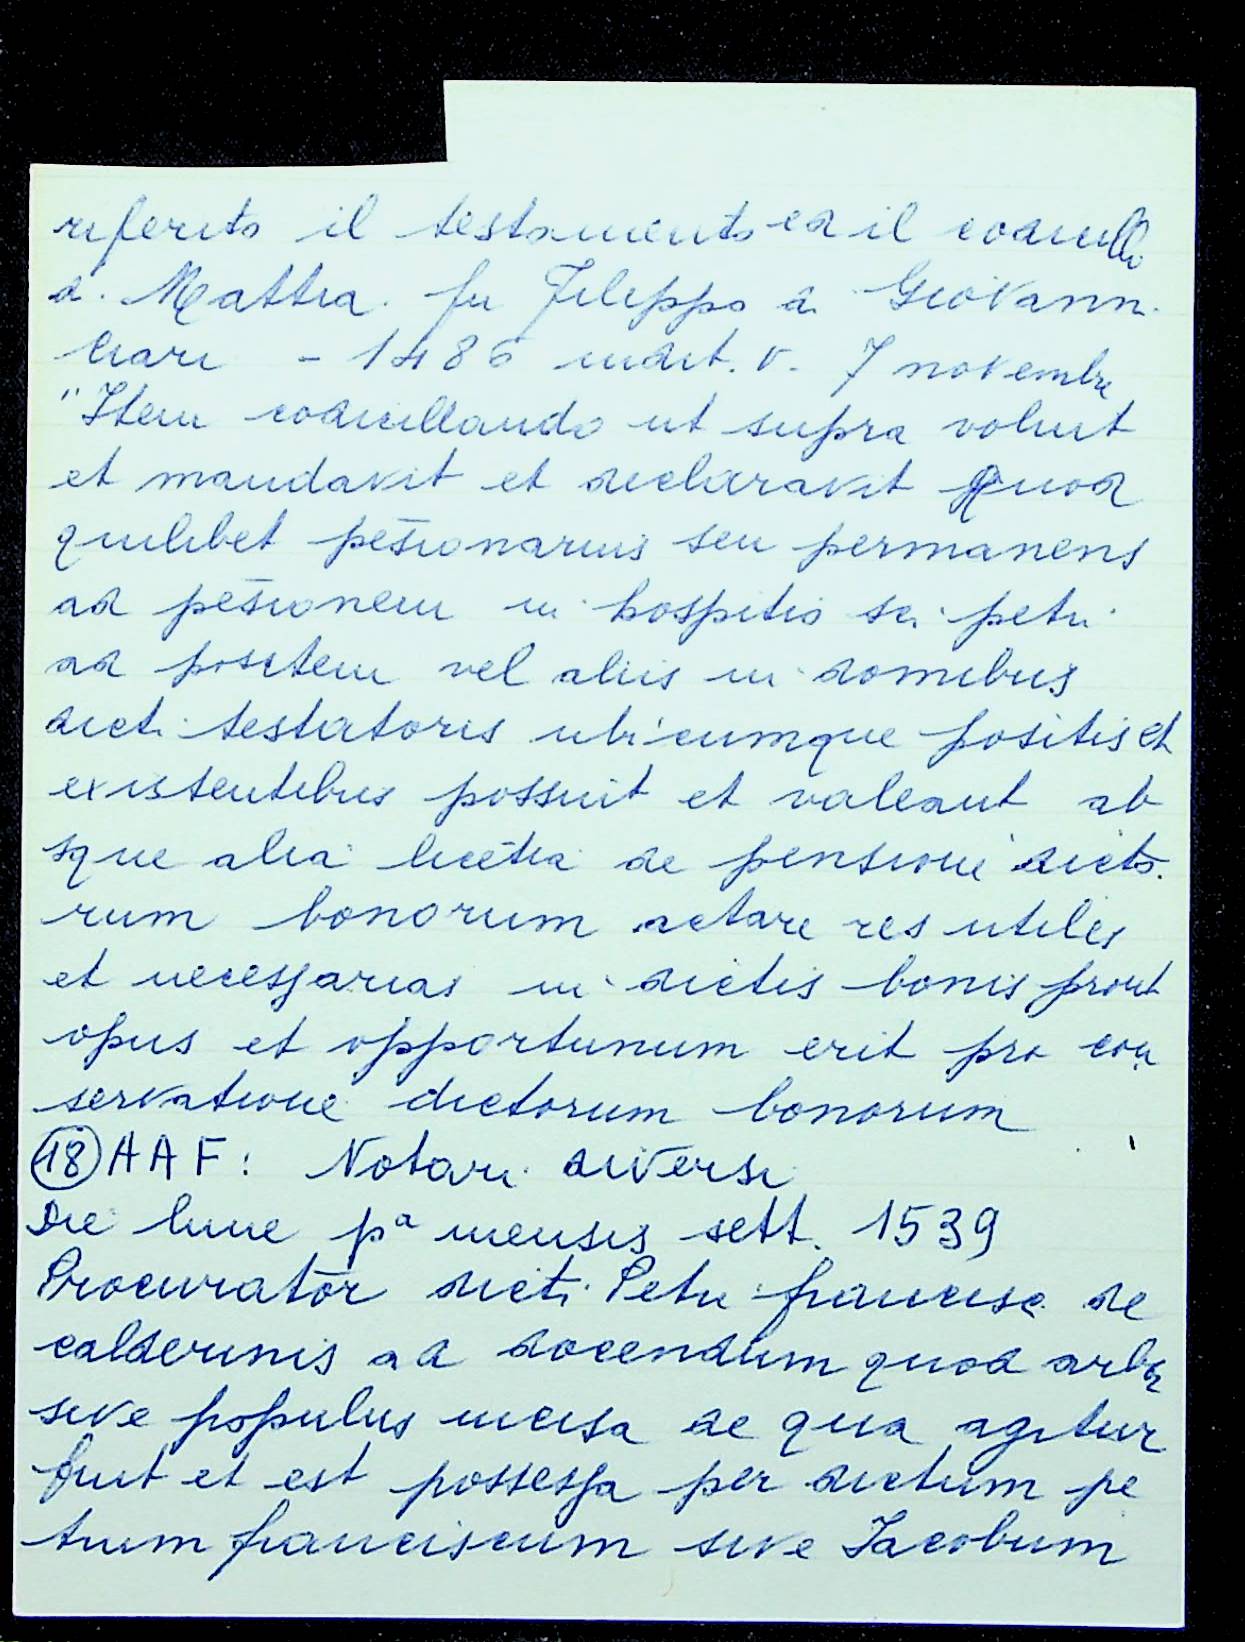 riferito il testamento ed il codicillo
d. Mattia fu Filippo d. Giovann.
1486 indict. V. 7 novembre
"Item codicillando ut supra voluit
et mandavit et declaravit quod
quilibet pēsionarius seu permanens
ad pēsionem in hospitio sci petri
ad positem vel aliis in domibus
dicti testatoris ubicumque positis et
existentibus possint et valeant ab
sque alia licētia de pensione dicto.
rum bonorum actare res utiles
et necessarias in dictis bonis prout
opus et opportunum erit pro con
servatione dictorum bonorum
(18) AAF: Notari diversi
Die lune pa mensis sett. 1539
Procurator dicti Petri francisc. de
calderinis ad docendum quod arbor
sive populus incisa de qua agitur
fuit et est possessa per dictum pe
trum franciscum sive Iacobum